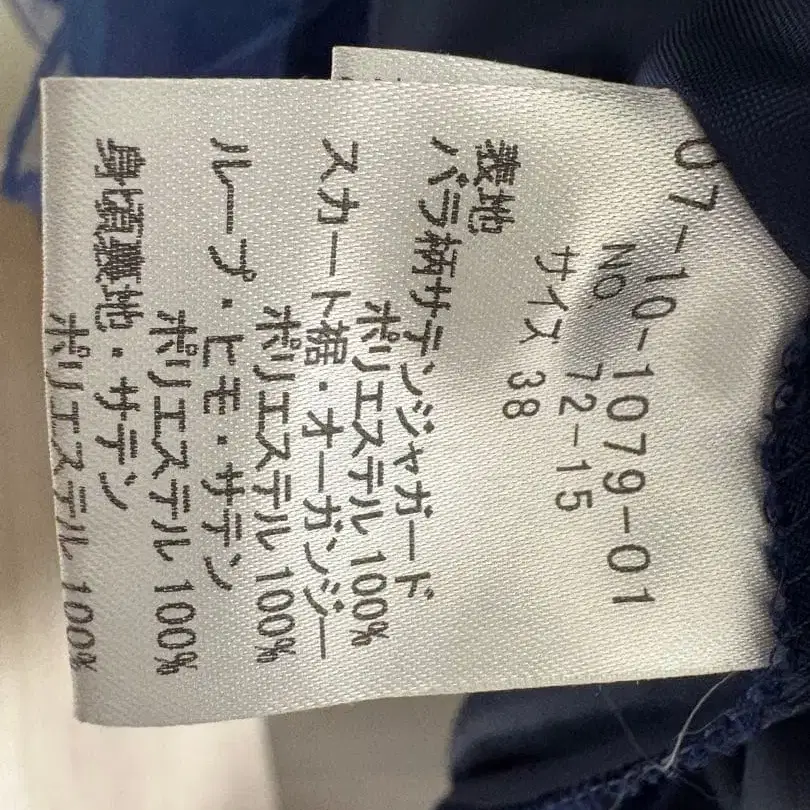 07-10-1079-01
NO 72-15
サイズ 38
表地
バラ柄サテンジャガード
ポリエステル 100%
スカート裾・オーガンジー
ポリエステル 100%
ループ・ヒモ・サテン
ポリエステル 100%
身頃裏地・サテン
ポリエステル 100%